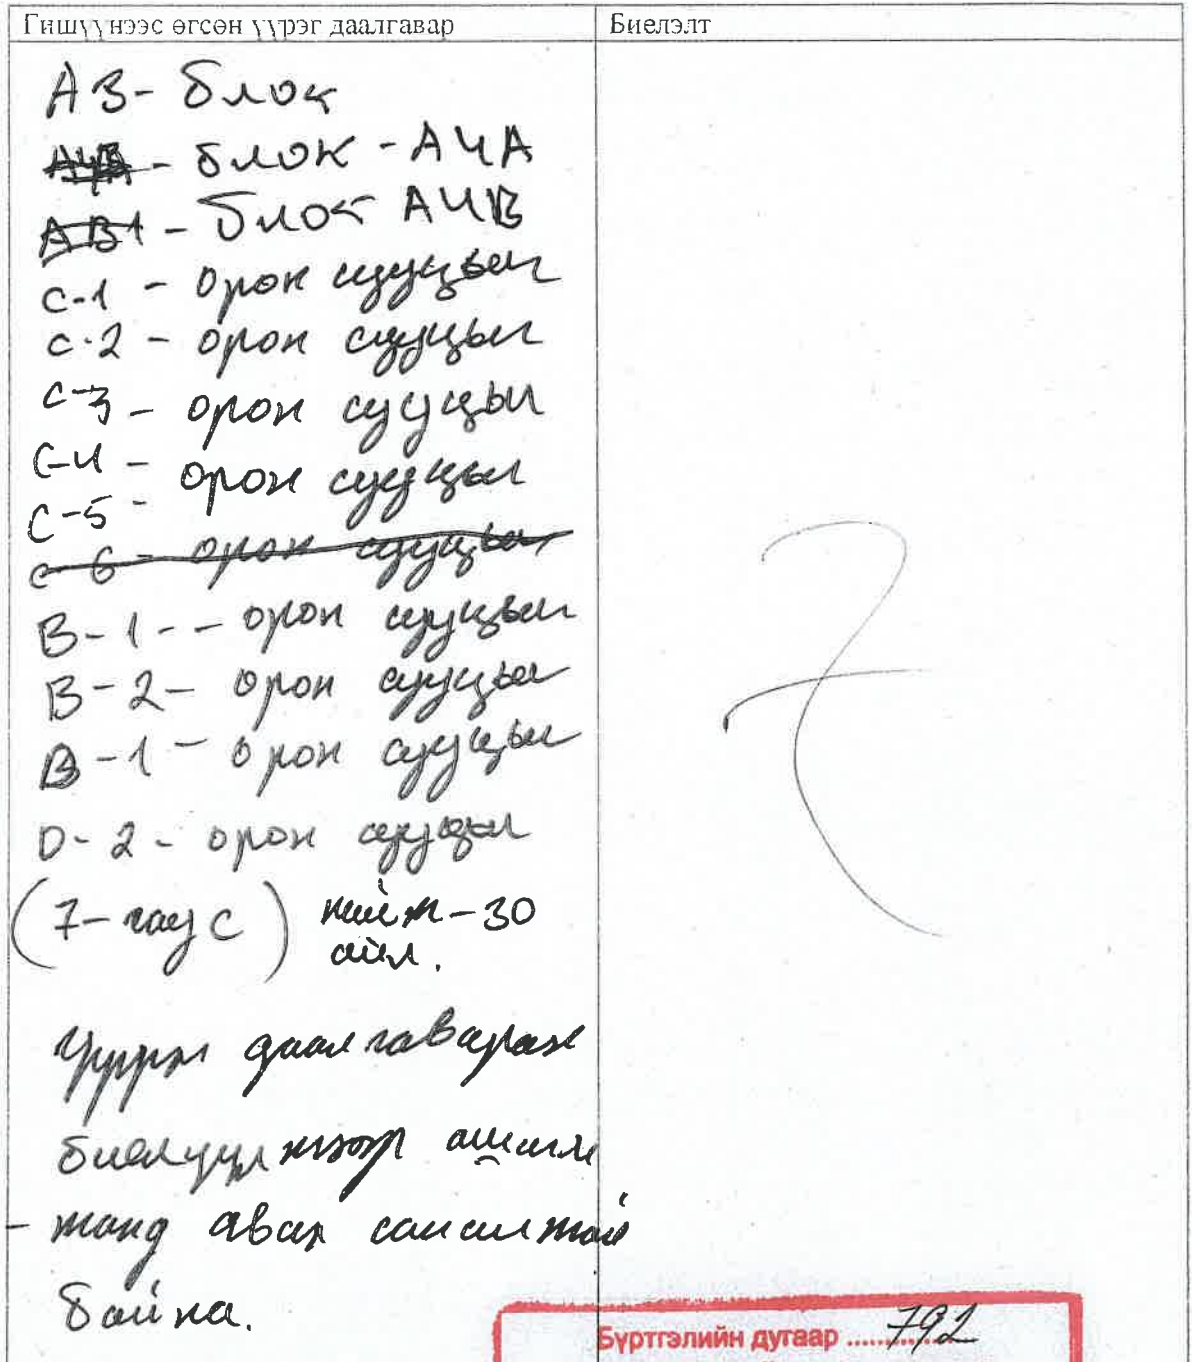 Гишүүнээс өгсөн үүрэг даалгавар
Биелэлт
А3- блок
- блок - А4А
АВ1 - блок А4В
С-1 - орон сууцыг
С-2 - орон сууцыг
С-3 - орон сууцыг
С-4 - орон сууцыг
С-5 -
С-6 - орон сууцыг
В-1 - - орон сууцыг
В-2 - орон сууцыг
В-1 - орон сууцыг
D-2 - орон сууцыг
(7-гаус) нийт-30
айл.
Үүрэг даалгаврын
биелүүлж
- танд авах саналтай
байна.
Бүртгэлийн дугаар 792